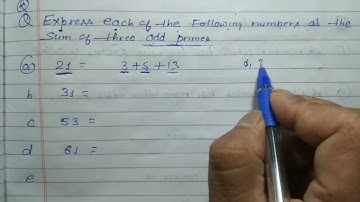 Q Express each of the following numbers as the
sum of three odd primes
(a) 21 = 3 + 5 + 13
b 31 =
c 53 =
d 61 =
e